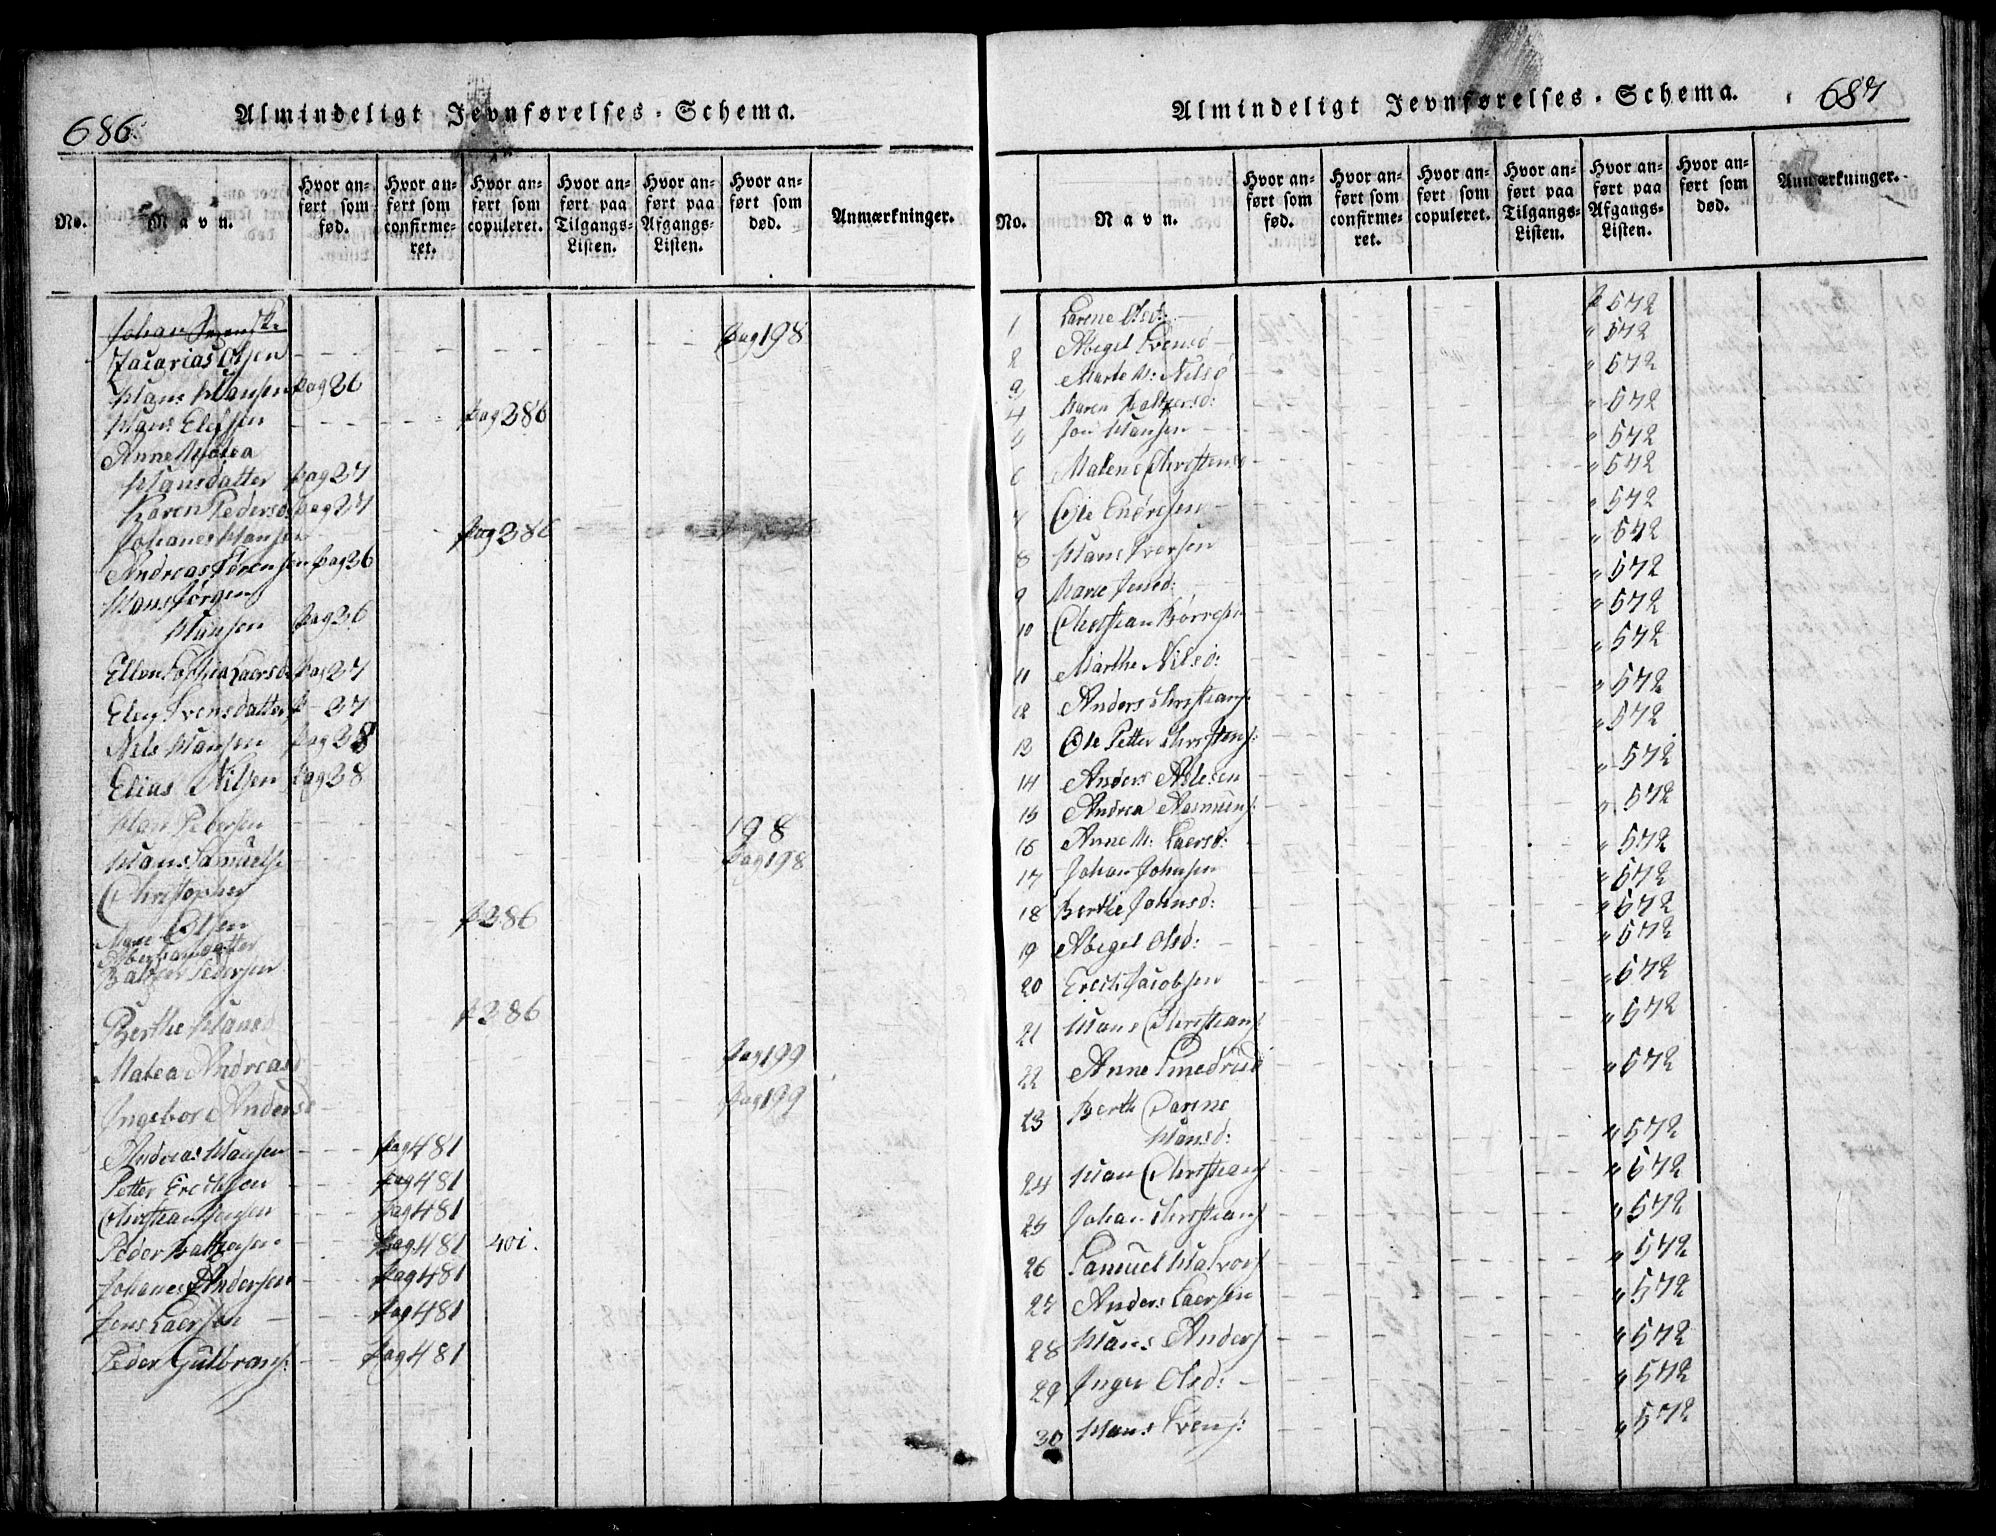 686.
Almindeligt Jevnførelses-Schema.
No.
Navn.
Hvor anført som fød.
Hvor anført som confirmeret.
Hvor anført som copuleret.
Hvor anført paa Tilgangs-Listen.
Hvor anført paa Afgangs-Listen.
Hvor anført som død.
Anmærkninger.
Johan
Zacarias Olsen pag 198
Hans Hansen pag 26
Hans Elefsen pag 386
Anne
Hansdatter pag 27
Karen Pedersd pag 27
Johanes Hansen pag 386
Andreas Sørensen pag 26
Hans Jørgen
Hansen pag 26
Ellen Sophia Laersd pag 27
Eleg Svensdatter p 27
Nils Hansen pag 28
Elias Nilsen pag 28
Hans Pedersen 198
Hans Samuels pag 198
Christopher
Olsen p 386
Baltzer Pedersen
Berthe Hansd p 386
Matea Andreasd pag 199
Ingebor Andersd pag 199
Andreas Hansen pag 481
Petter Erichsen pag 481
Christian Jensen pag 481
Peder Baltzersen pag 481 401.
Johanes Andersen pag 481
Jens Laersen pag 481
Peder Gulbrans: pag 481
Almindeligt Jevnførelses-Schema.
687
No.
Navn.
Hvor anført som fød.
Hvor anført som confirmeret.
Hvor anført som copuleret.
Hvor anført paa Tilgangs-Listen.
Hvor anført paa Afgangs-Listen.
Hvor anført som død.
Anmærkninger.
1 Carene Olsd: p 572
2 Abegel Svensd " 572
3 Marte M: Nilsd " 572
4 Maren Baltzersd: " 572
5 Jon Hansen " 572
6 Malene Christensd " 572
7 Ole Endresen " 572
8 Hans Iversen " 572
9 Marie Jensd: " 572
10 Christian Børresen " 572
11 Marthe Nilsd: " 572
12 Anders Christians: " 572
13 Ole Petter Christens: " 572
14 Anders Aslesen " 572
15 Andrea Rasmuns: " 572
16 Anne M: Laersd: " 572
17 Johan Johnsen " 572
18 Berthe Johnsd: " 572
19 Abegel Olsd: " 572
20 Erich Jacobsen " 572
21 Hans Christians " 572
22 Anne " 572
23 Berth Carene
Hansd: " 572
24 Hans Christians " 572
25 Johan Christians " 572
26 Samuel Halvors " 572
27 Anders Laersen " 572
28 Hans Anders " 572
29 Inger Olsd: " 572
30 Hans Svens: " 572